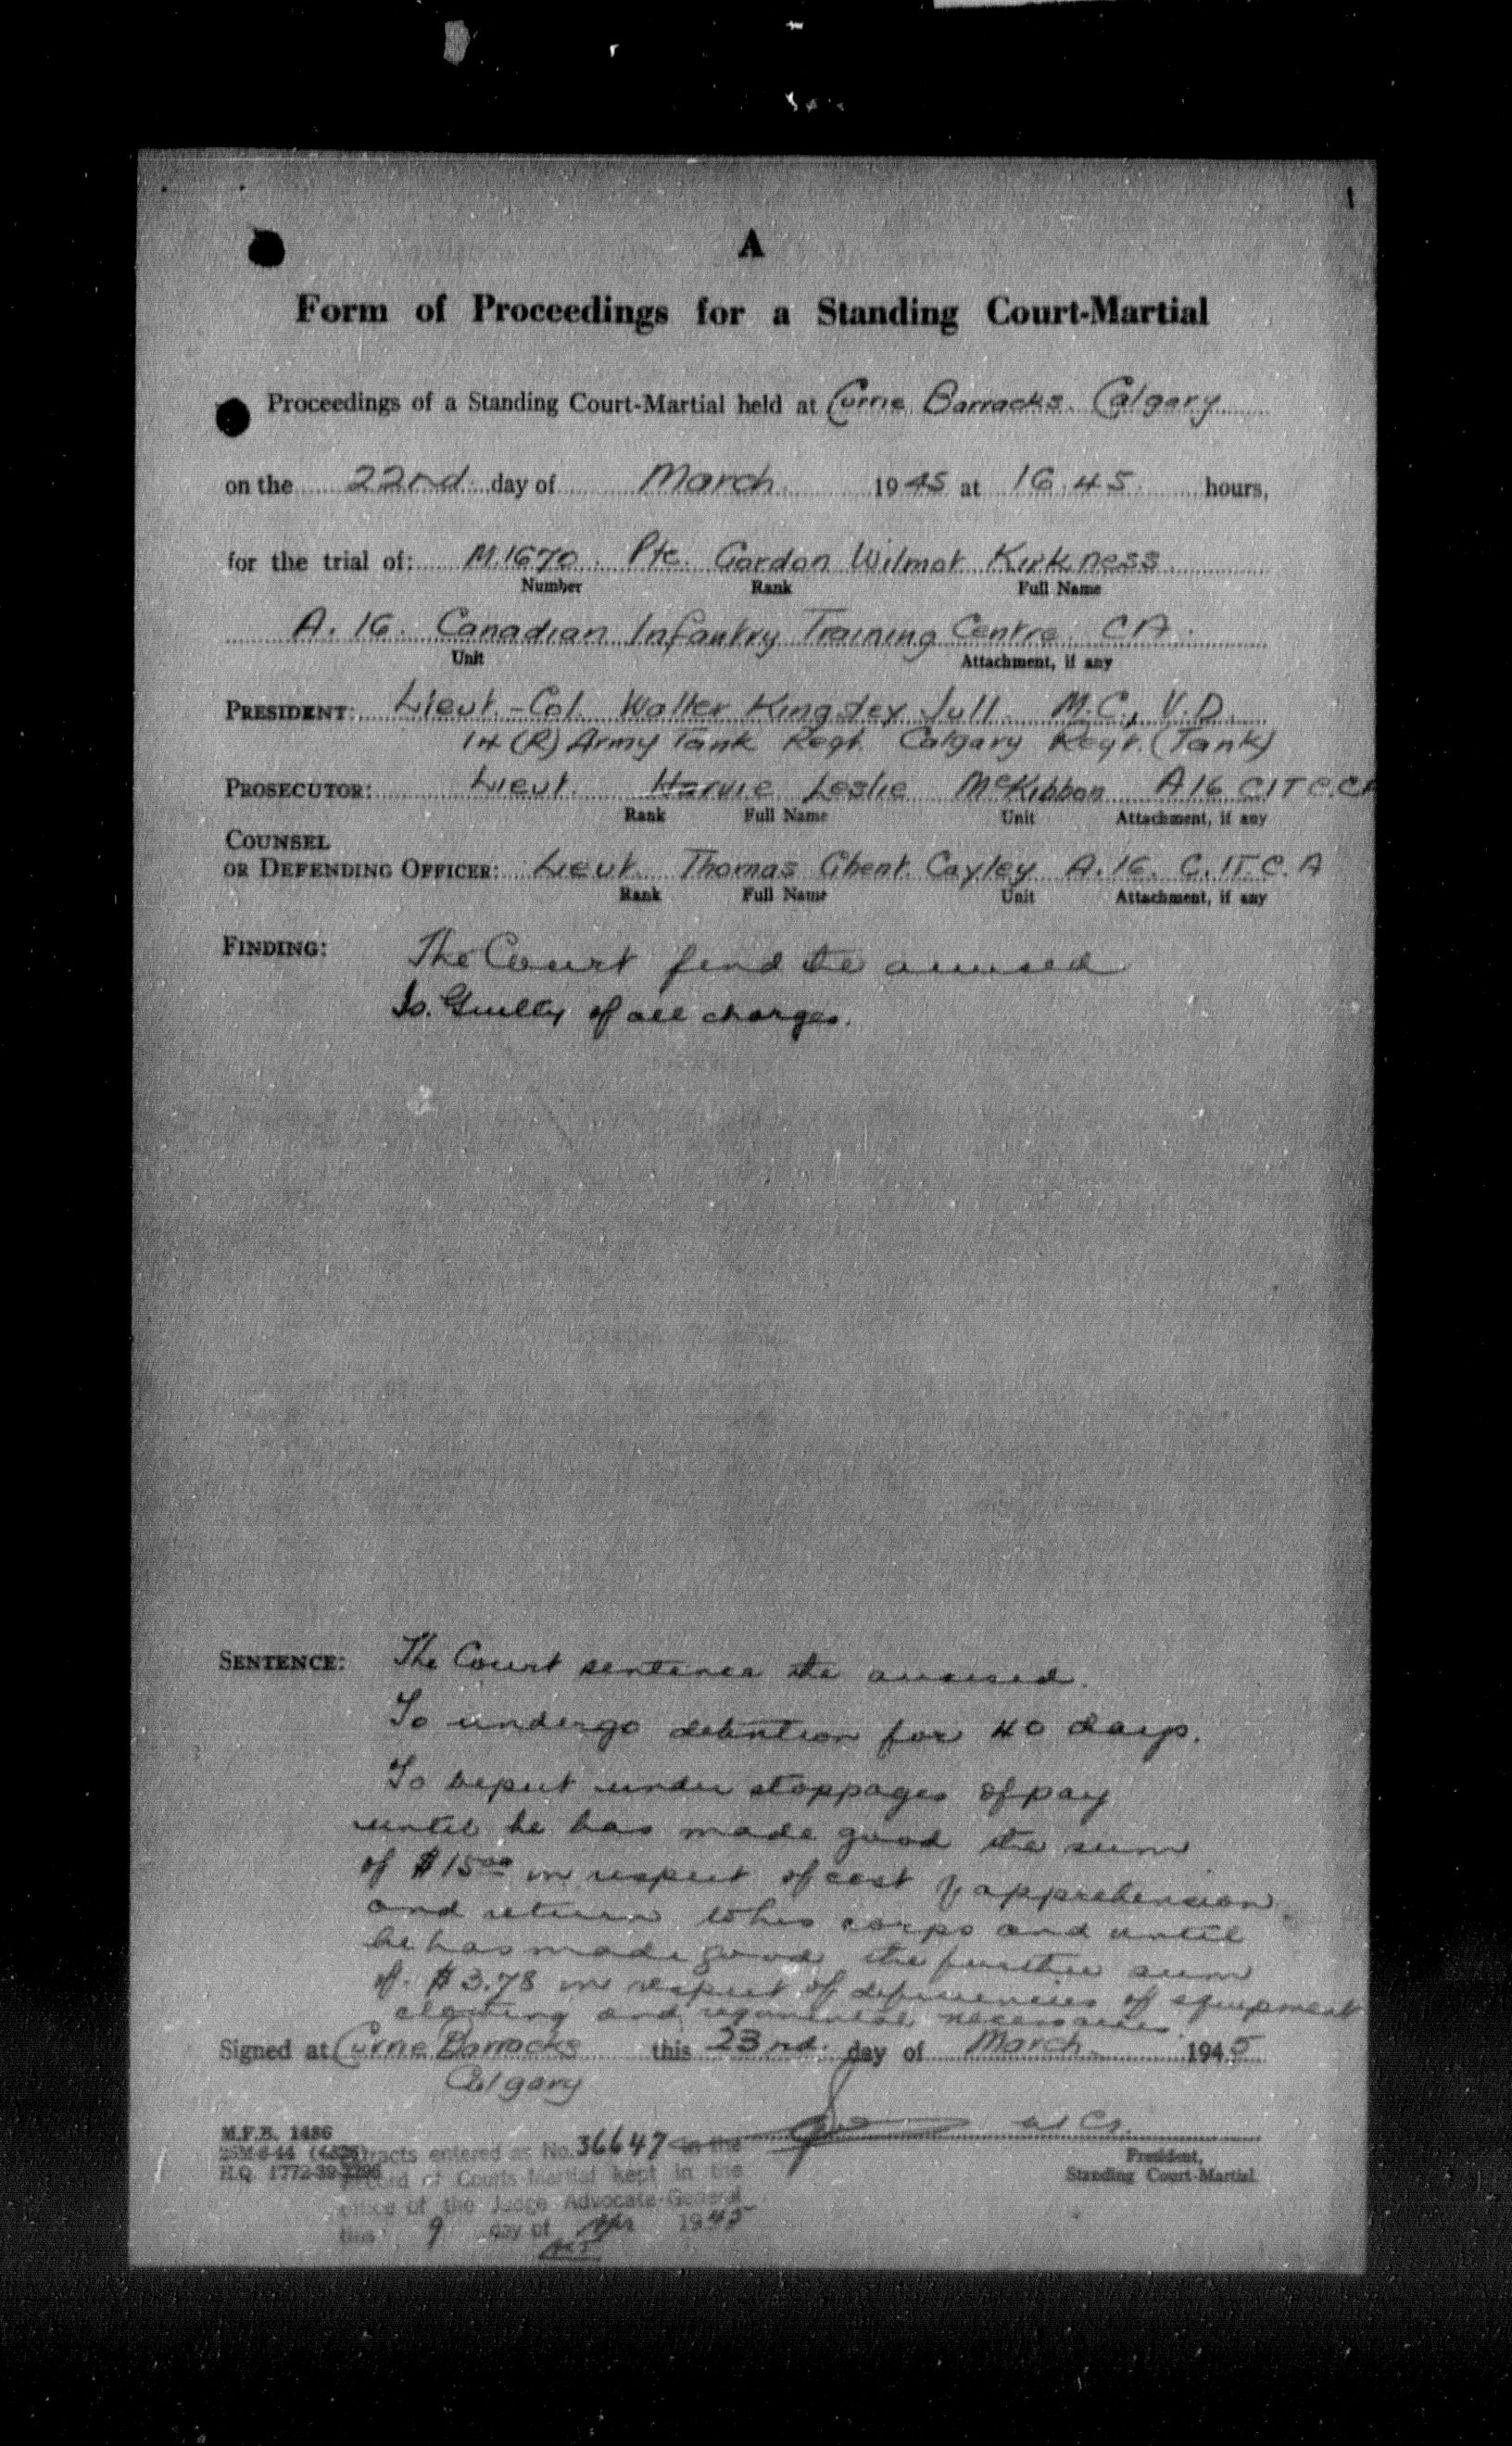 A
Form of Proceedings for a Standing Court-Martial
Proceedings of a Standing Court-Martial held at Currie Barracks. Calgary
on the 22nd. day of March. 1945 at 16.45. hours,
for the trial of: M.1670. Pte. Gordon Wilmot Kirkness.
Number Rank Full Name
A. 16. Canadian Infantry Training Centre. CA.
Unit Attachment, if any
PRESIDENT: Lieut.-Col. Walter Jull. M.C., V.D.
14 (R) Army Tank Regt. Calgary Regt. (Tank)
PROSECUTOR: Lieut. Harvie Leslie McKibbon A16 CITC.CA
Rank Full Name Unit Attachment, if any
COUNSEL
OR DEFENDING OFFICER: Lieut. Thomas Ghent. Cayley A.16. C.IT.C.A
Rank Full Name Unit Attachment, if any
FINDING: The Court find the accused
Is. Guilty of all charges.
SENTENCE: The Court sentence the accused.
To undergo detention for 40 days.
To be put under stoppages of pay
until he has made good the sum
of $15.00 in respect of cost of apprehension
and return to his corps and until
he has made good the further sum
of. $3.78 in respect of deficiencies of equipment
clothing and regimental necessaries.
Signed at Currie Barracks this 23rd. day of March. 1945
Calgary
M.F.B. 1486
25M-6-44 (4326)
H.Q. 1772-39-
President,
Standing Court-Martial
Extracts entered as No. 36647 in the
Record of Courts-Martial kept in the
office of the Judge Advocate-General
this 9 day of Apr 1945